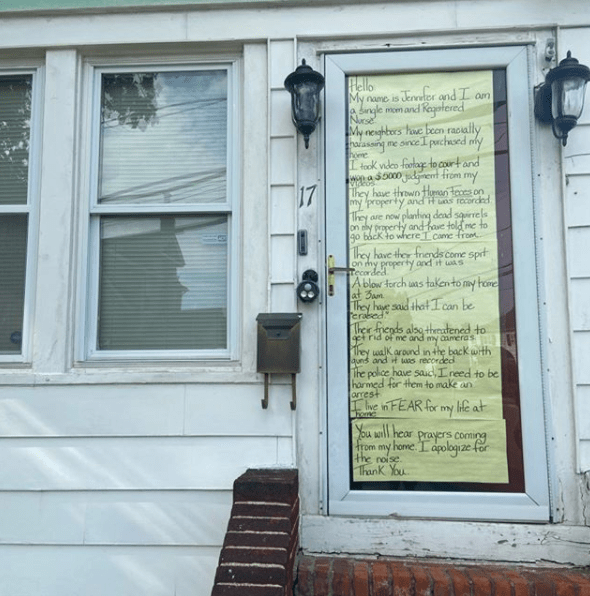 Hello
My name is Jennifer and I am
a single mom and Registered
Nurse
My neighbors have been racially
harassing me since I purchased my
home
I took video footage to court and
won a $5000 judgment from my
videos
They have thrown Human Feces on
my property and it was recorded.
They are now planting dead squirrels
on my property and have told me to
go back to where I came from.
They have their friends come spit
on my property and it was
recorded.
A blow torch was taken to my home
at 3am.
They have said that I can be
"erased."
Their friends also threatened to
get rid of me and my cameras.
They walk around in the back with
guns and it was recorded
The police have said, I need to be
harmed for them to make an
arrest
I live in FEAR for my life at
home
You will hear prayers coming
from my home. I apologize for
the noise.
Thank You.
17